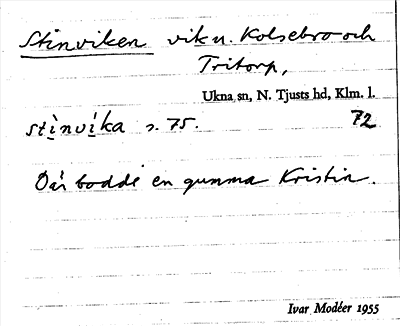 Stinviken vik n. Kolsebro och
Tritorp,
Ukna sn, N. Tjusts hd, Klm. l.
stìnvíka s. 75. 72
Där bodde en gumma Kristin.
Ivar Modéer 1955